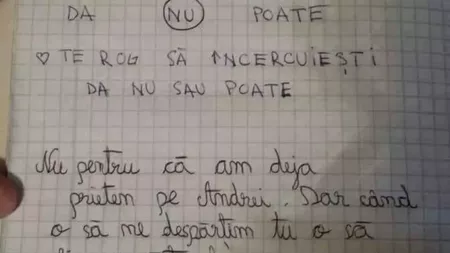 DA NU POATE
♡ TE ROG SĂ ÎNCERCUIEȘTI
DA NU SAU POATE
Nu pentru că am deja
prieten pe Andrei. Dar când
o să me despărtim tu o să